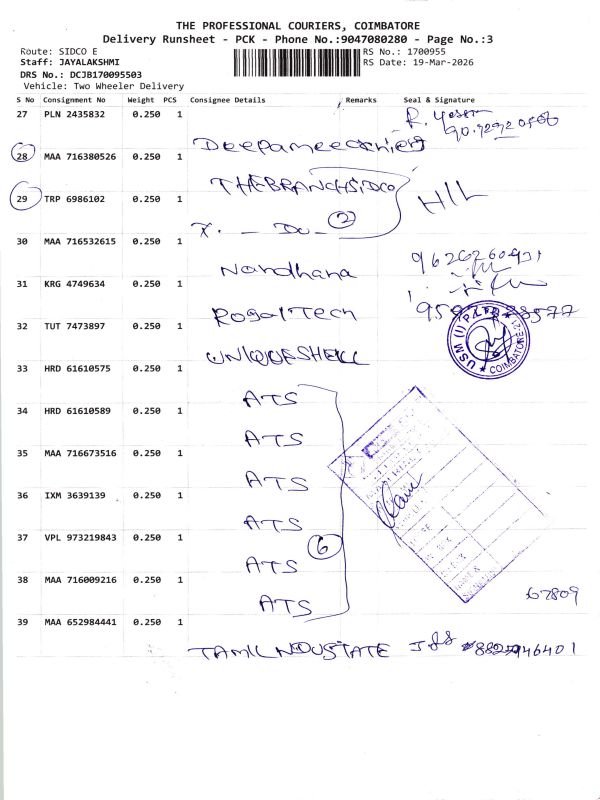 THE PROFESSIONAL COURIERS, COIMBATORE
Delivery Runsheet - PCK - Phone No.:9047080280 - Page No.:3
Route: SIDCO E
RS No.: 1700955
Staff: JAYALAKSHMI
RS Date: 19-Mar-2026
DRS No.: DCJB170095503
Vehicle: Two Wheeler Delivery
S No Consignment No Weight PCS Consignee Details Remarks Seal & Signature
27 PLN 2435832 0.250 1
28 MAA 716380526 0.250 1
THEBRANCHSIDCO
29 TRP 6986102 0.250 1
H/L
2
30 MAA 716532615 0.250 1
Nandhana
31 KRG 4749634 0.250 1
RoyalTech
32 TUT 7473897 0.250 1
UNIQUESHELL
COIMBATORE-21
33 HRD 61610575 0.250 1
ATS
34 HRD 61610589 0.250 1
ATS
35 MAA 716673516 0.250 1
ATS
36 IXM 3639139 0.250 1
ATS
37 VPL 973219843 0.250 1
6
ATS
38 MAA 716009216 0.250 1
67809
ATS
39 MAA 652984441 0.250 1
TAMIL NDUSTATE